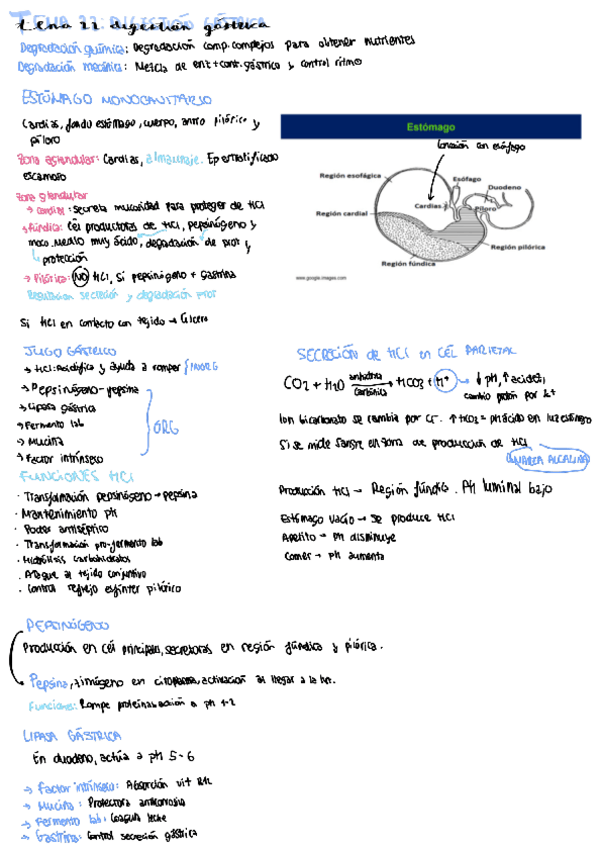 TEMA 22: DIGESTIÓN GÁSTRICA
Tema 22 digestión gástrica
Degradación química: Degradación comp. complejos para obtener nutrientes
Degradación mecánica: Mezcla de enz + cont. gástrico y control ritmo
ESTÓMAGO MONOCAVITARIO
Cardias, fondo estómago, cuerpo, antro pilórico y
píloro
Zona aglandular: Cardias, almacenaje. Ep estratificado
escamoso
Zona glandular
→ Cardial: Secreta mucosidad para proteger de HCl
→ Fúndica: Cél productoras de HCl, pepsinógeno y
moco. Medio muy ácido, degradación de prot y
protección
→ Pilórica: NO HCl, sí pepsinógeno + gastrina
Regulación secreción y degradación prot
Si HCl en contacto con tejido → Úlcera
Estómago
Conexión con esófago
Región esofágica
Esófago
Duodeno
Cardias
Píloro
Región cardial
Región pilórica
Región fúndica
www.google.images.com
JUGO GÁSTRICO
→ HCl: Acidifica y ayuda a romper } INORG
→ Pepsinógeno - pepsina
→ Lipasa gástrica
→ Fermento lab
→ Mucina
→ Factor intrínseco
ORG
FUNCIONES HCl
· Transformación pepsinógeno → pepsina
· Mantenimiento pH
· Poder antiséptico
· Transformación pro-fermento lab
· Hidrólisis carbohidratos
· Ataque al tejido conjuntivo
· Control reflejo esfínter pilórico
SECRECIÓN DE HCl EN CÉL PARIETAL
CO2 + H2O anhidrasa carbónica → HCO3 + H+ → ↓ pH, ↑ acidez,
cambio protón por K+
Ion bicarbonato se cambia por Cl-. ↑ HCO3 = pH ácido en luz estómago
Si se mide sangre en zona de producción de HCl
MAREA ALCALINA
Producción HCl → Región fúndica. pH luminal bajo
Estómago vacío → Se produce HCl
Apetito → pH disminuye
Comer → pH aumenta
PEPSINÓGENO
Producción en cél principales, secretoras en región fúndica y pilórica.
Pepsina, zimógeno en citoplasma, activación al llegar a la luz.
Funciones: Rompe proteínas acción a pH 1-2
LIPASA GÁSTRICA
En duodeno, actúa a pH 5-6
→ Factor intrínseco: Absorción vit B12
→ Mucina: Protectora anticorrosiva
→ Fermento lab: Coagula leche
→ Gastrina: Control secreción gástrica